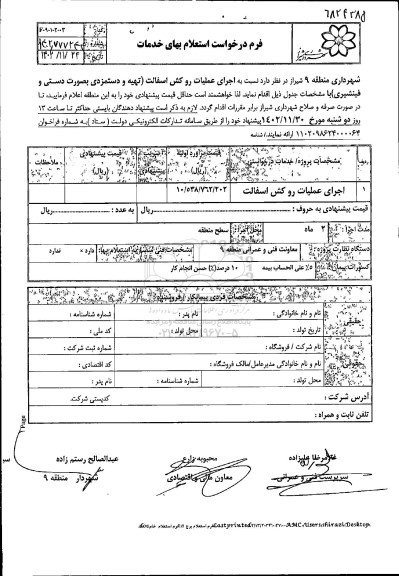 ۶۸۲۴۳۸۵
فرم درخواست استعلام بهای خدمات
۶۰۹۰۱۰۲۰۳
۱۴۰۲/۱۱/۲۴
شهرداری منطقه ۹ شیراز در نظر دارد نسبت به اجرای عملیات رو کش اسفالت (تهیه و دستمزدی بصورت دستی و
فینیشری)با مشخصات جدول ذیل اقدام نماید. لذا خواهشمند است حداقل قیمت پیشنهادی خود را به این منطقه اعلام فرمایید. تا
در صورت صرفه و صلاح شهرداری شیراز برابر مقررات اقدام گردد. لازم به ذکر است پیشنهاد دهندگان بایستی حداکثر تا ساعت ۱۳
روز دو شنبه مورخ ۱۴۰۲/۱۱/۳۰ پیشنهاد خود را از طریق سامانه تدارکات الکترونیکی دولت ( ستاد )به شماره فراخوان
۱۱۰۲۰۹۸۶۲۴۰۰۰۰۶۴ ارائه نمایند.
ردیف مشخصات پروژه/ خدمات درخواستی قیمت برآورد اولیه (ریال) قیمت پیشنهادی (ریال) ملاحظات
۱ اجرای عملیات رو کش اسفالت ۱۰/۰۳۸/۷۶۲/۲۰۲
قیمت پیشنهادی به حروف : ریال به عدد : ریال
مدت اجرا : ۲ ماه محل اجرا : سطح منطقه
دستگاه نظارت پروژه : معاونت فنی و عمرانی منطقه ۹ دارد × ندارد
کسورات پیمان ۵٪ علی الحساب بیمه ۱۰ درصد(٪) حسن انجام کار
مشخصات فردی پیمانکار / فروشنده
حقیقی نام و نام خانوادگی : نام پدر : شماره شناسنامه :
تاریخ تولد : محل تولد : کد ملی :
حقوقی نام شرکت / فروشگاه : شماره ثبت شرکت :
نام و نام خانوادگی مدیرعامل/مالک فروشگاه : کد اقتصادی :
محل تولد : شماره شناسنامه : نام پدر :
آدرس شرکت : کدپستی شرکت.
تلفن ثابت و همراه :
غلامرضا علیزاده محبوبه زارع عبدالصالح رستم زاده
سرپرست فنی و عمرانی معاون مالی و اقتصادی شهردار منطقه ۹
Page